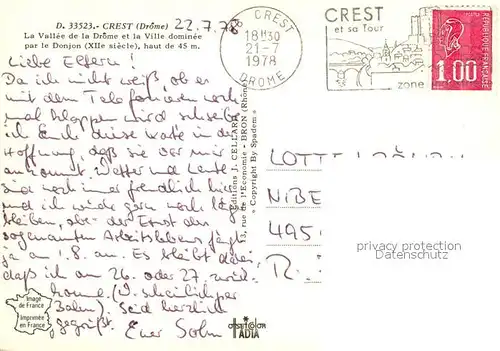 D. 33523.- CREST (Drôme)
La Vallée de la Drôme et la Ville dominée
par le Donjon (XIIe siècle), haut de 45 m.
22.7.78
Liebe Eltern!
Da ich nicht weiß, ob es
mit dem Telefonieren noch
mal klappen wird schreibe
ich Euch diese Karte in der
Hoffnung, daß sie vor mir
ankommt. Wetter und Leute
sind noch immer freundlich hier
und ich würde gern noch länger
bleiben, aber der Ernst des
sogenannten Arbeitslebens fängt
ja am 1.8. an. Es bleibt dabei,
daß ich am 26. oder 27. zurück-
komme. (Wahrscheinlich per
Bahn). Seid herzlich
gegrüßt. Euer Sohn
Image
de France
Imprimée
en France
Editions J. CELLARD
13, rue de l'Economie - BRON (Rhône)
Copyright By Spadem
ADIA
CREST
18H30
21-7
1978
DROME
CREST
et sa Tour
zone
1.00
LOTTE
NIBE
495
R.
privacy protection
Datenschutz